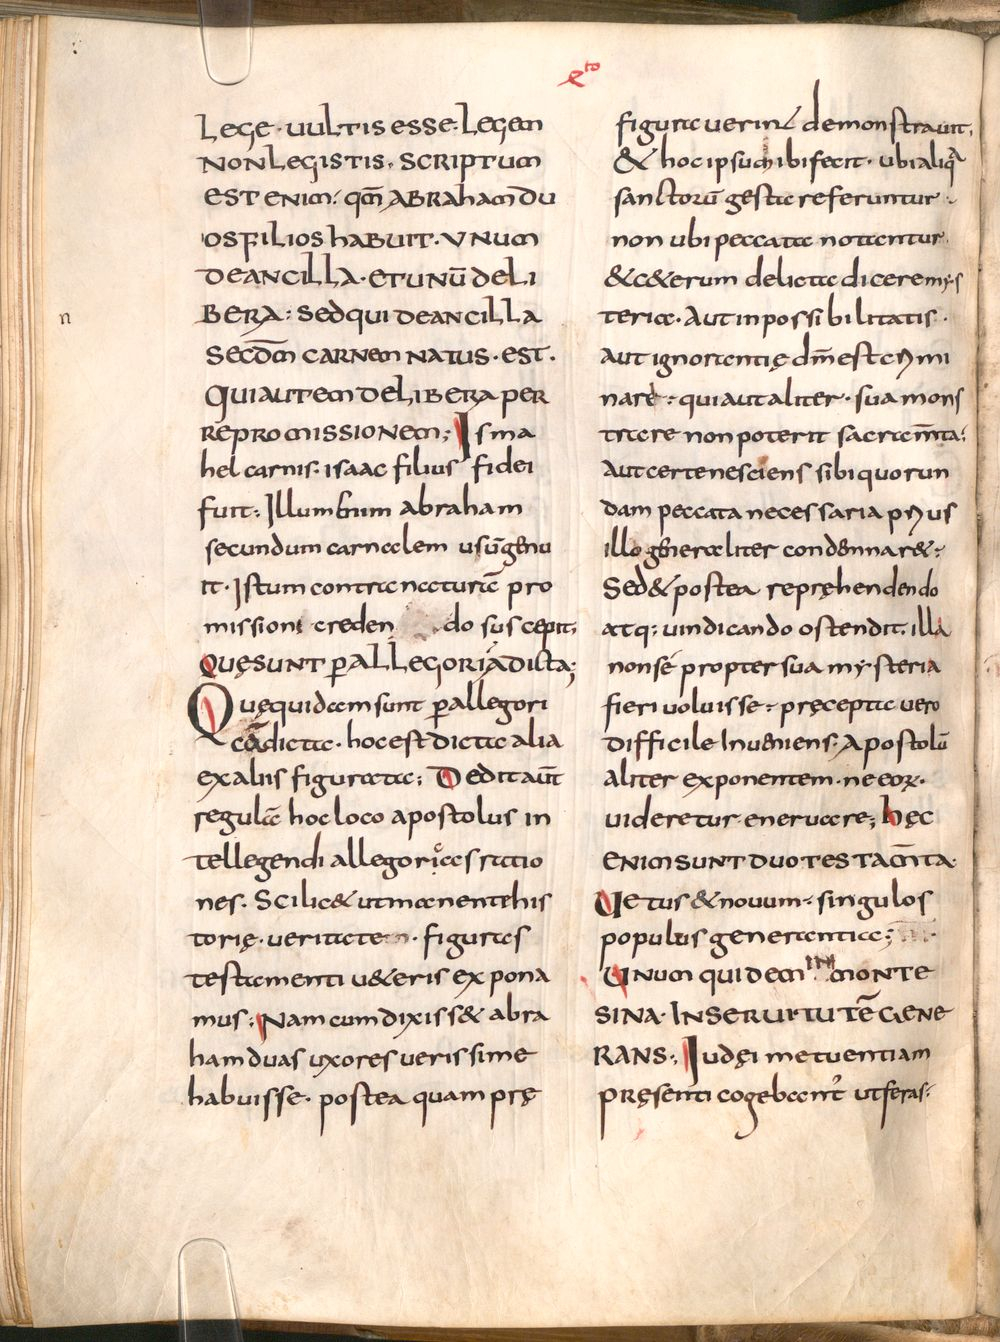 eto
lege · uultis esse · legem
non legistis · scriptum
est enim: qm̄ abraham du
os filios habuit · unum
de ancilla · et unū de li
n
bera: sed qui de ancilla
secdm̄ carnem natus · est ·
qui autem de libera per
repromissionem; Isma
hel carnis · isaac filius fidei
fuit: Illum enim abraham
secundum carnalem usū genu
it · Istum contra naturā pro
missioni creden do suscepit;
quę sunt p allegoriā dicta;
Quę quidam sunt p allegori
cā dicta · hoc est dicta alia
ex aliis figurata; Dedit aūt
regulā hoc loco apostolus in
tellegendi allegoricas ratio
nes · Scilic& ut manente his
torię · ueritate · figuras
testamenti u&eris expona
mus: Nam cum dixiss& abra
ham duas uxores uerissime
habuisse · postea quam prę
figurauerint demonstrauit,
& hoc ipsum ibi fecit · ubi aliqa
sanctorū gesta referuntur ·
non ubi peccata notantur
&c&erum delicta dicere mys
teria · Aut inpossibilitatis ·
aut ignorantię dm̄ est crimi
nare: qui aut aliter · sua mons
trare non poterit sacram̄ta:
aut certe nesciens sibi quorun
dam peccata necessaria prius
illo generaliter condemnar&:
Sed & postea repręhendendo
atq: uindicando ostendit · illa
non sé propter sua mysteria
fieri uoluisse: pręcepta uero
difficile Inueniens · Apostolū
aliter exponentem · ne eoꝝ ·
uideretur eneruare; hęc
enim sunt duo testam̄ta ·
Uetus & nouum: singulos
populus generantia;
Unum quidem IN monte
sina · In seruitutē gene
rans · Iudęi metu etiam
pręsenti cogebant ut feras: